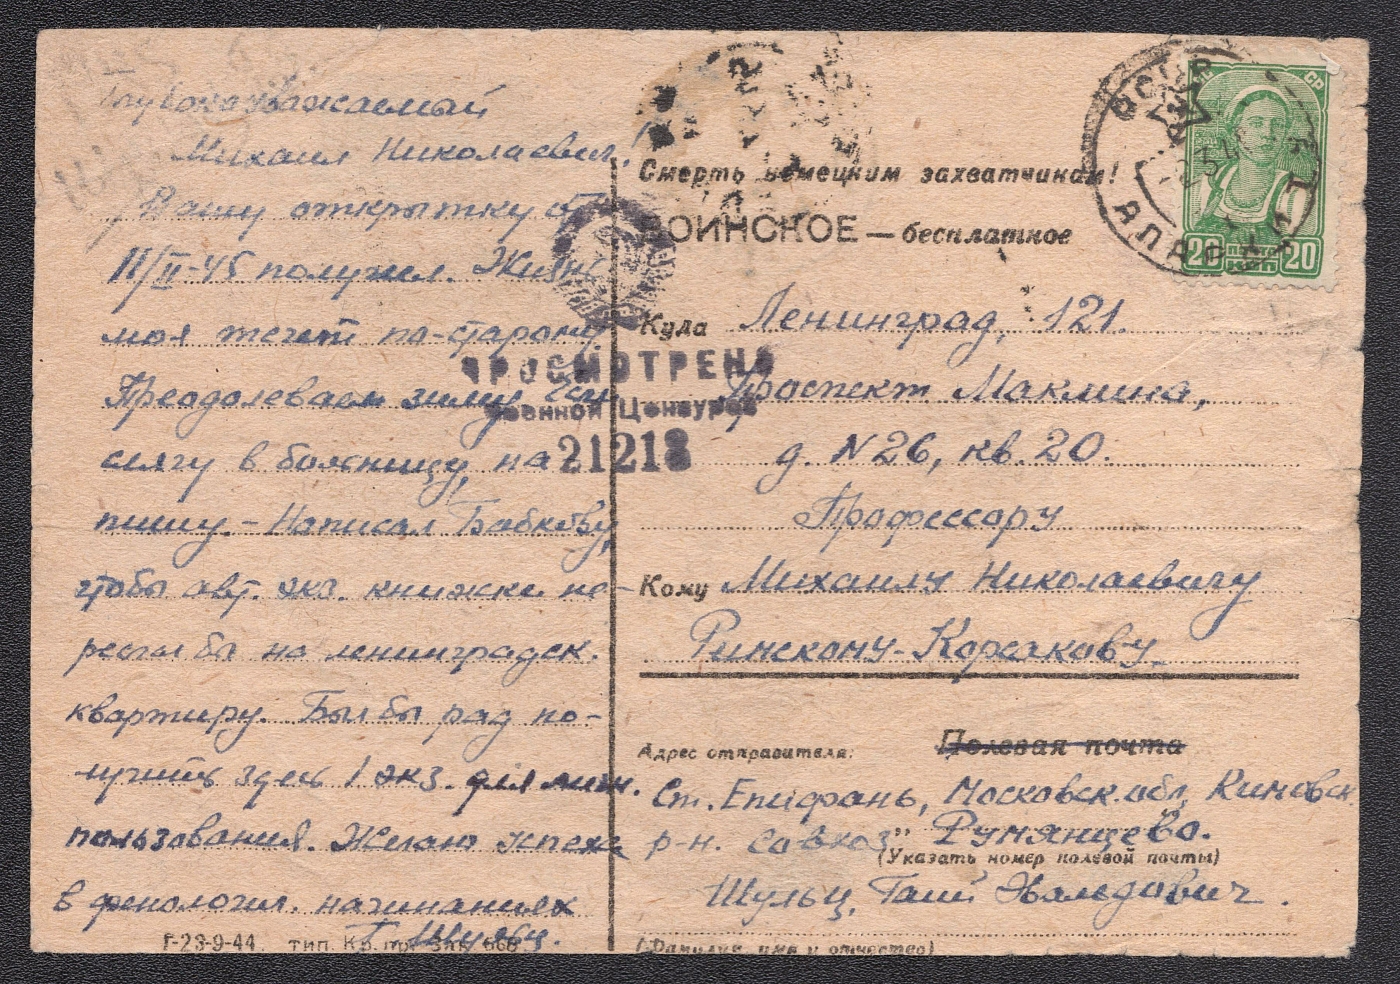 Глубокоуважаемый
Михаил Николаевич!
Вашу открытку от
11/II-45 получил. Жизнь
моя течет по-старому
Преодолеваем зиму,
сягу в больницу,
пишу. - Написал Бабкову,
чтобы авт. экз. книжки пе-
реслал бы на ленинградск.
квартиру. Был бы рад по-
лучить здесь 1 экз. для личн.
пользования. Желаю успеха
в фенологич. начинаниях
Г. Шульц.
Г-23-9-44. тип. Кр. пр. Зак. 668
ПРОСМОТРЕНО
Военной Цензурой
21218
Смерть немецким захватчикам!
ВОИНСКОЕ — бесплатное
Куда Ленинград, 121.
Проспект Маклина,
д. N 26, кв. 20.
Профессору
Кому Михаилу Николаевичу
Римскому-Корсакову.
Адрес отправителя: Полевая почта
Ст. Епифань, Московск. обл. Кимовск.
р-н. совхоз "Румянцево.
(Указать номер полевой почты)
Шульц, Гаий Эвальдович.
(Фамилия, имя и отчество)
СССР
20 КОП 20